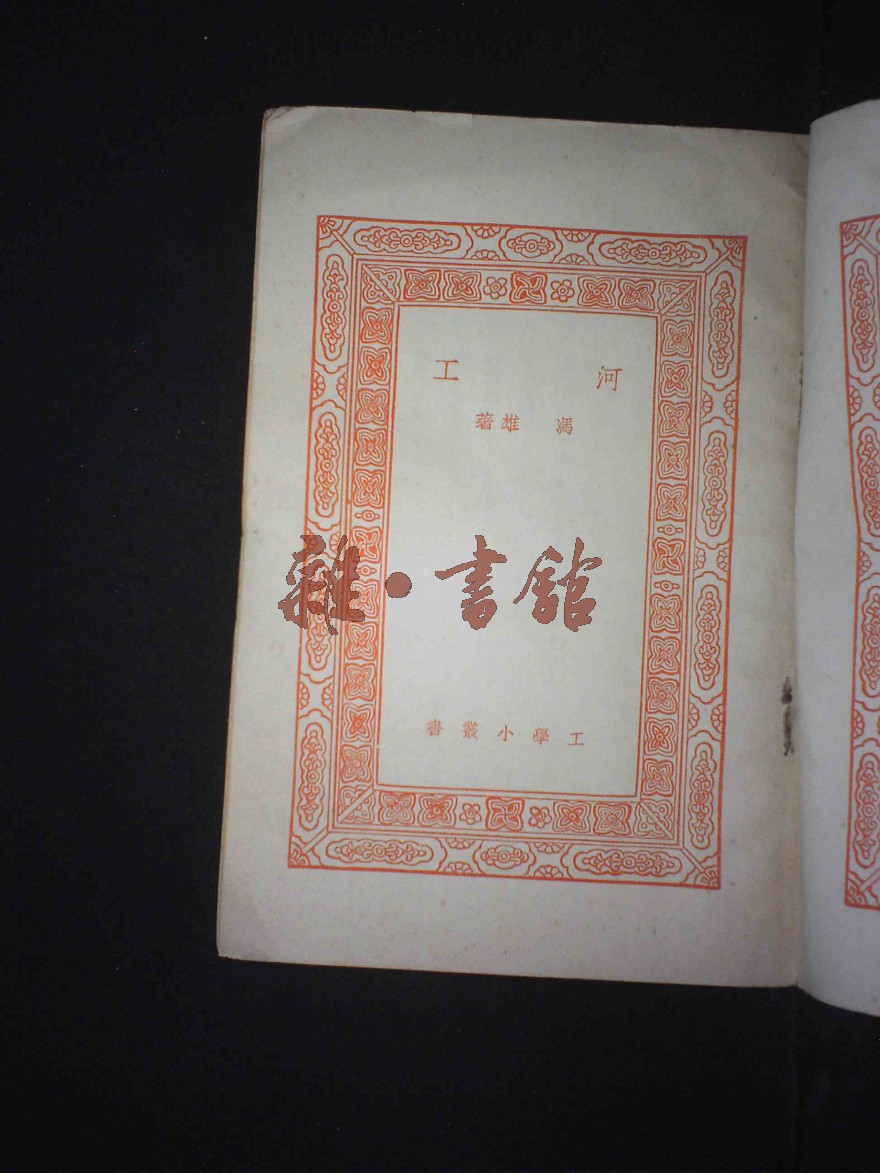 河工
馮雄著
雜·書館
工學小叢書